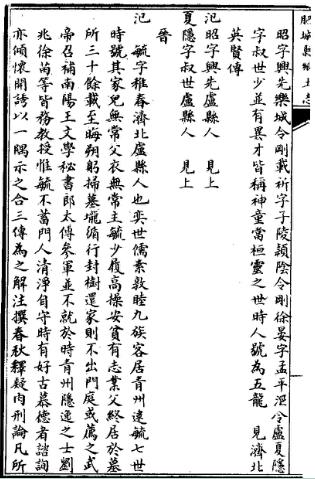 肥城縣鄉土志
昭字興先欒城令剛戴祈字子陵潁陰令剛徐晏字孟平涇令盧夏隱
字叔世少並有異才皆稱神童當桓靈之世時人號為五龍 見濟北
英賢傳
氾昭字興先盧縣人 見上
夏隱字叔世盧縣人 見上
晉
氾 毓字稚春濟北盧縣人也奕世儒素敦睦九族客居青州逮毓七世
時號其家兒無常父衣無常主毓少履高操安貧有志業父終居於墓
所三十餘載至晦朔躬掃墓壠循行封樹還家則不出門庭或薦之武
帝召補南陽王文學秘書郎太傅參軍並不就於時青州隱逸之士劉
兆徐苗等皆務教授惟毓不蓄門人清淨自守時有好古慕德者諮詢
亦傾懷開誘以一隅示之合三傳為之解注撰春秋釋疑肉刑論凡所